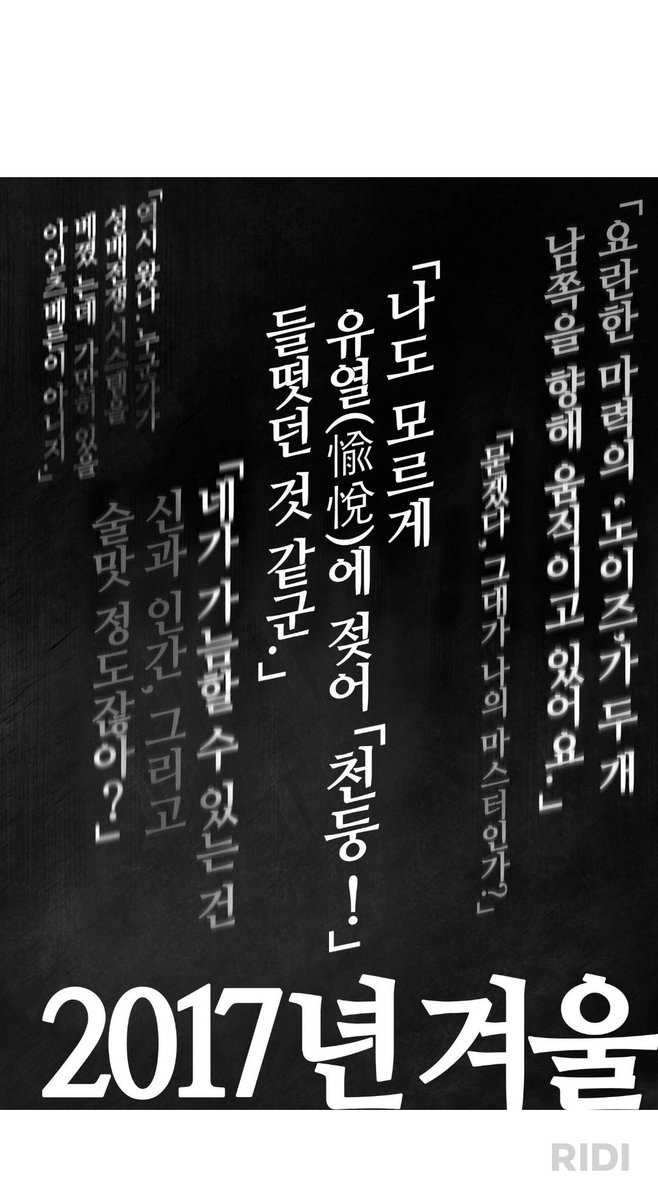 「요란한 마력의 ‘노이즈’가 두 개
남쪽을 향해 움직이고 있어요.」
「묻겠다, 그대가 나의 마스터인가?」
「나도 모르게
유열(愉悅)에 젖어
들떴던 것 같군.」
「천둥!」
「네가 가늠할 수 있는 건
신과 인간, 그리고
술맛 정도잖아?」
「역시 왔나. 누군가가
성배전쟁 시스템을
베꼈는데 가만히 있을
아인츠베른이 아니지.」
2017년 겨울
RIDI